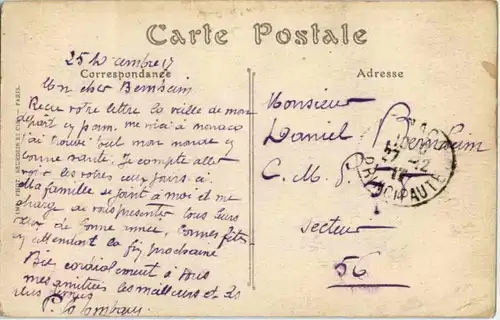 Carte Postale
Correspondance
Adresse
25 Décembre 17
Mon cher Bernheim
Recu votre lettre la veille de mon
départ me voici à monaco
ai trouvé tout mon monde
bonne santé. Je compte aller
les votres ceux jours ci
Ma famille se joint à moi et me
charge de vous presenter tous leurs
vœux de bonne année, bonnes fêtes
Attendant la prochaine
Bien cordialement à vous
mes amitiées les meilleurs et les
plus
P. Colombani
Monsieur
Daniel Bernheim
C. M. P.
Secteur
56
MONACO
PRINCIPAUTE
PARIS